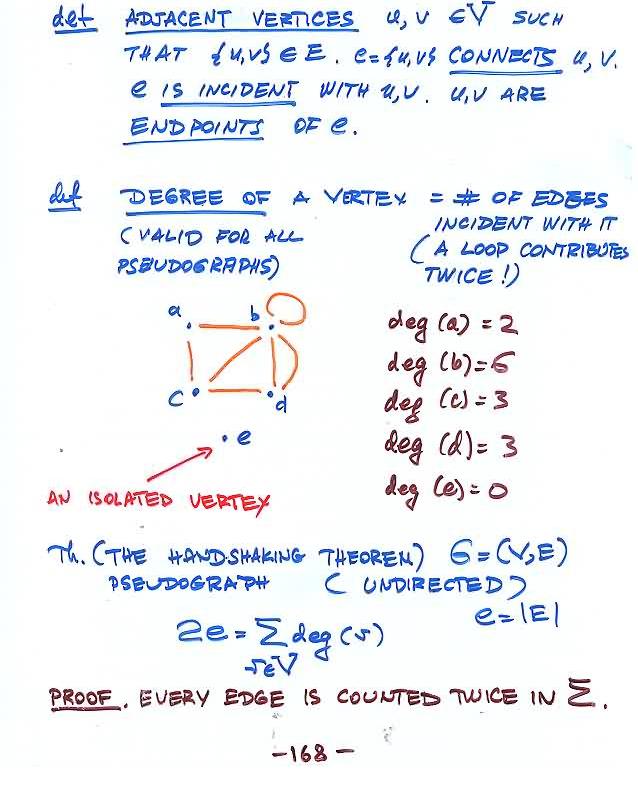 def ADJACENT VERTICES u, v ∈ V SUCH
THAT {u,v} ∈ E. e={u,v} CONNECTS u, v.
e IS INCIDENT WITH u,v. u,v ARE
ENDPOINTS OF e.
def DEGREE OF A VERTEX = # OF EDGES
INCIDENT WITH IT
(VALID FOR ALL
PSEUDOGRAPHS)
(A LOOP CONTRIBUTES
TWICE!)
a b
c d
e
AN ISOLATED VERTEX
deg (a) = 2
deg (b) = 6
deg (c) = 3
deg (d) = 3
deg (e) = 0
Th. (THE HANDSHAKING THEOREM) G = (V,E)
PSEUDOGRAPH (UNDIRECTED)
e = |E|
2e = Σ deg (v)
v∈V
PROOF. EVERY EDGE IS COUNTED TWICE IN Σ.
-168-